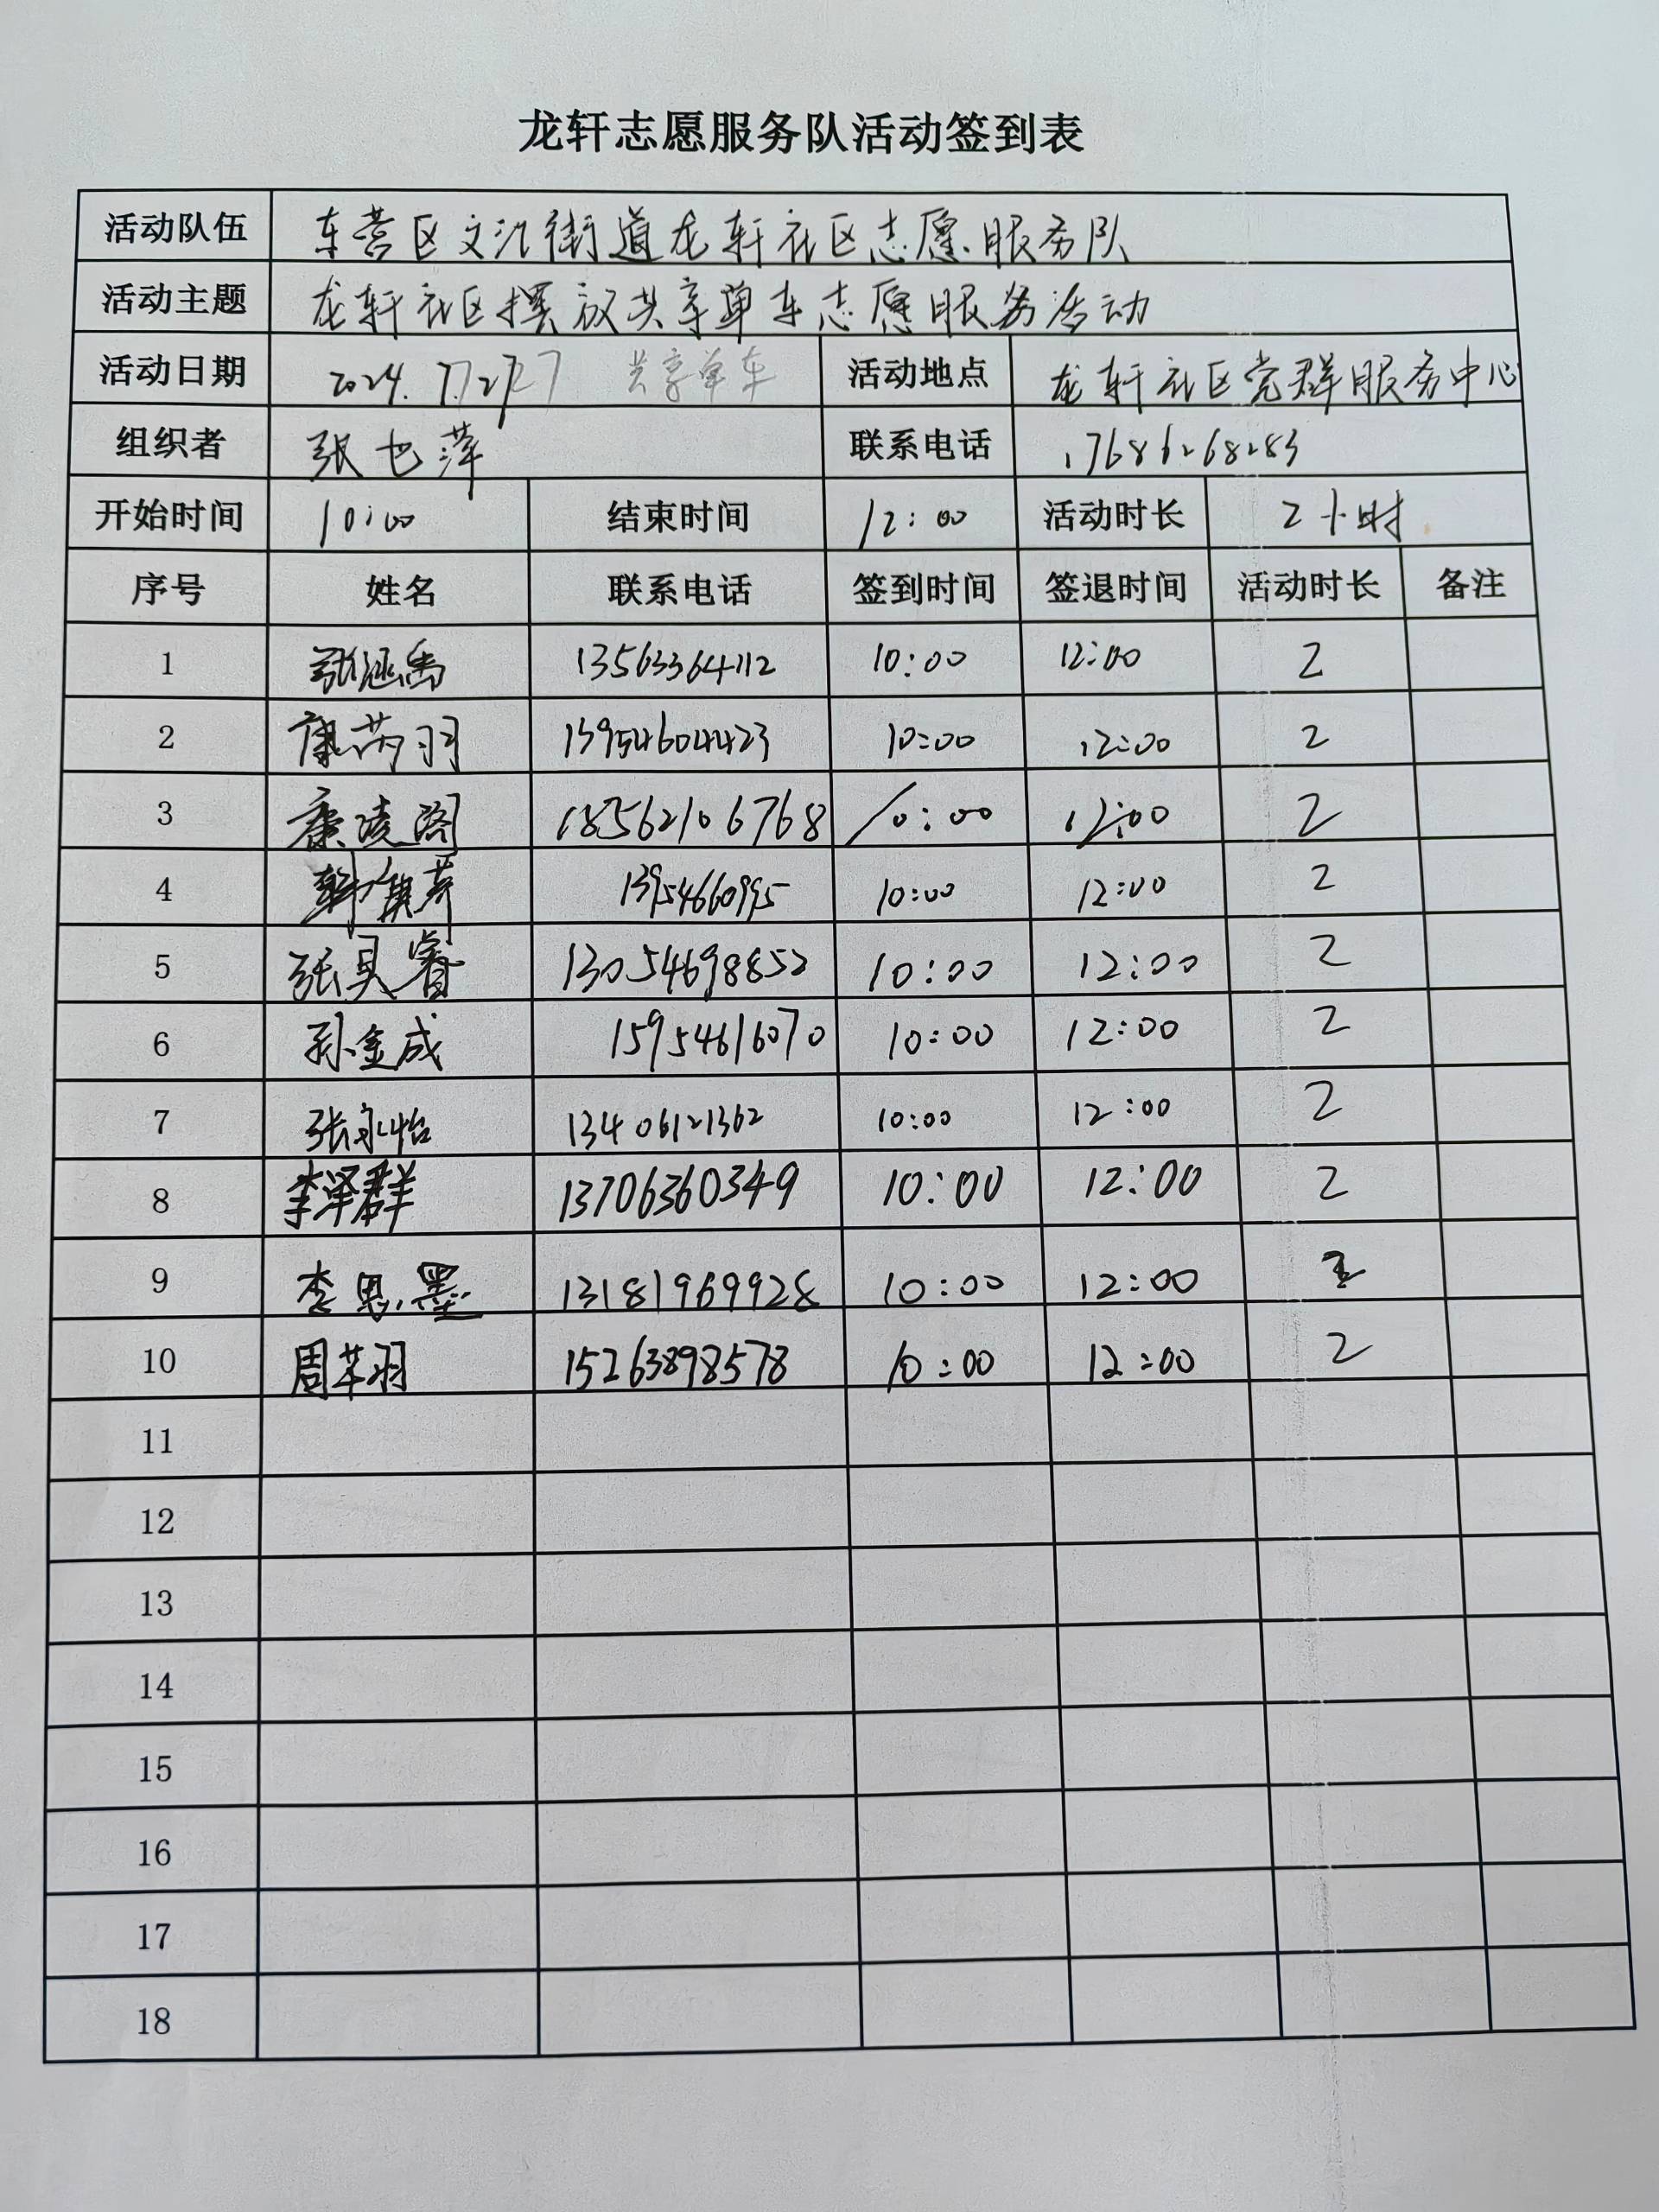 龙轩志愿服务队活动签到表
活动队伍 东营区文汇街道龙轩社区志愿服务队
活动主题 龙轩社区摆放共享单车志愿服务活动
活动日期 2024.7.27 共享单车 活动地点 龙轩社区党群服务中心
组织者 张也萍 联系电话 17686268283
开始时间 10:00 结束时间 12:00 活动时长 2小时
序号 姓名 联系电话 签到时间 签退时间 活动时长 备注
1 张涵禹 13563364112 10:00 12:00 2
2 康芮羽 13954604423 10:00 12:00 2
3 康凌阁 18562106768 10:00 12:00 2
4 13954660995 10:00 12:00 2
5 张昊睿 13054698852 10:00 12:00 2
6 孙金成 15954616070 10:00 12:00 2
7 张永怡 13406121362 10:00 12:00 2
8 李泽群 13706360349 10:00 12:00 2
9 李思墨 13181969928 10:00 12:00 2
10 周芊羽 15263898578 10:00 12:00 2
11
12
13
14
15
16
17
18